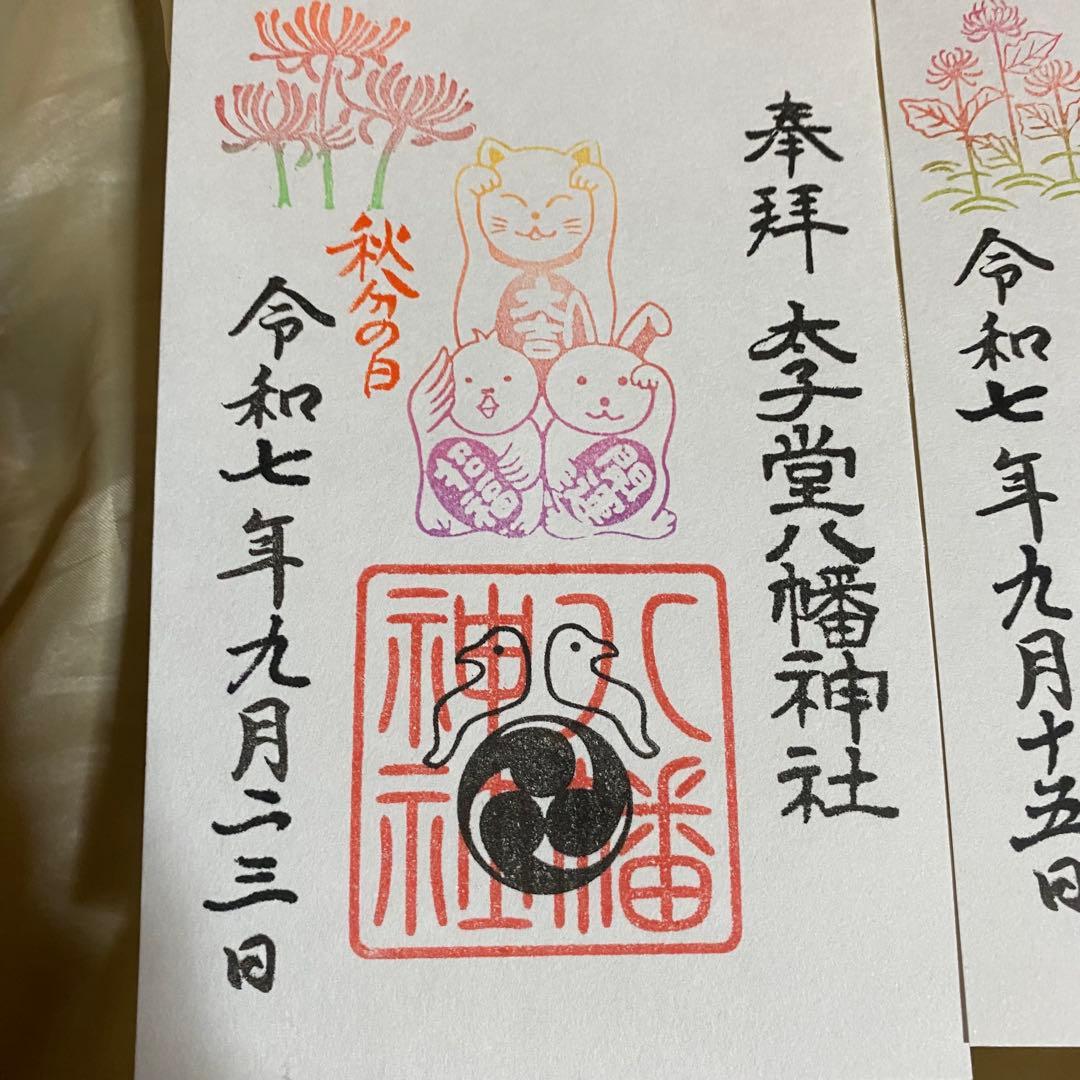 令和七年九月十五日
奉拝 太子堂八幡神社
大吉
招福
八幡
神社
秋分の日
令和七年九月二三日